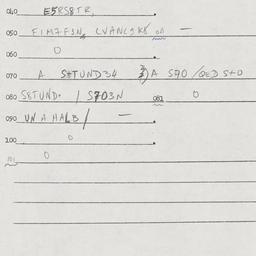 040 E5RS8TR,
050 FIM7F5N, LVANCSK8 OA —
060 0
070 A S8TUND34 3) A S70 /QED S+0
080 S8TUND. / S703N 081 0
090 UN A HALB / —
100 0
101 0